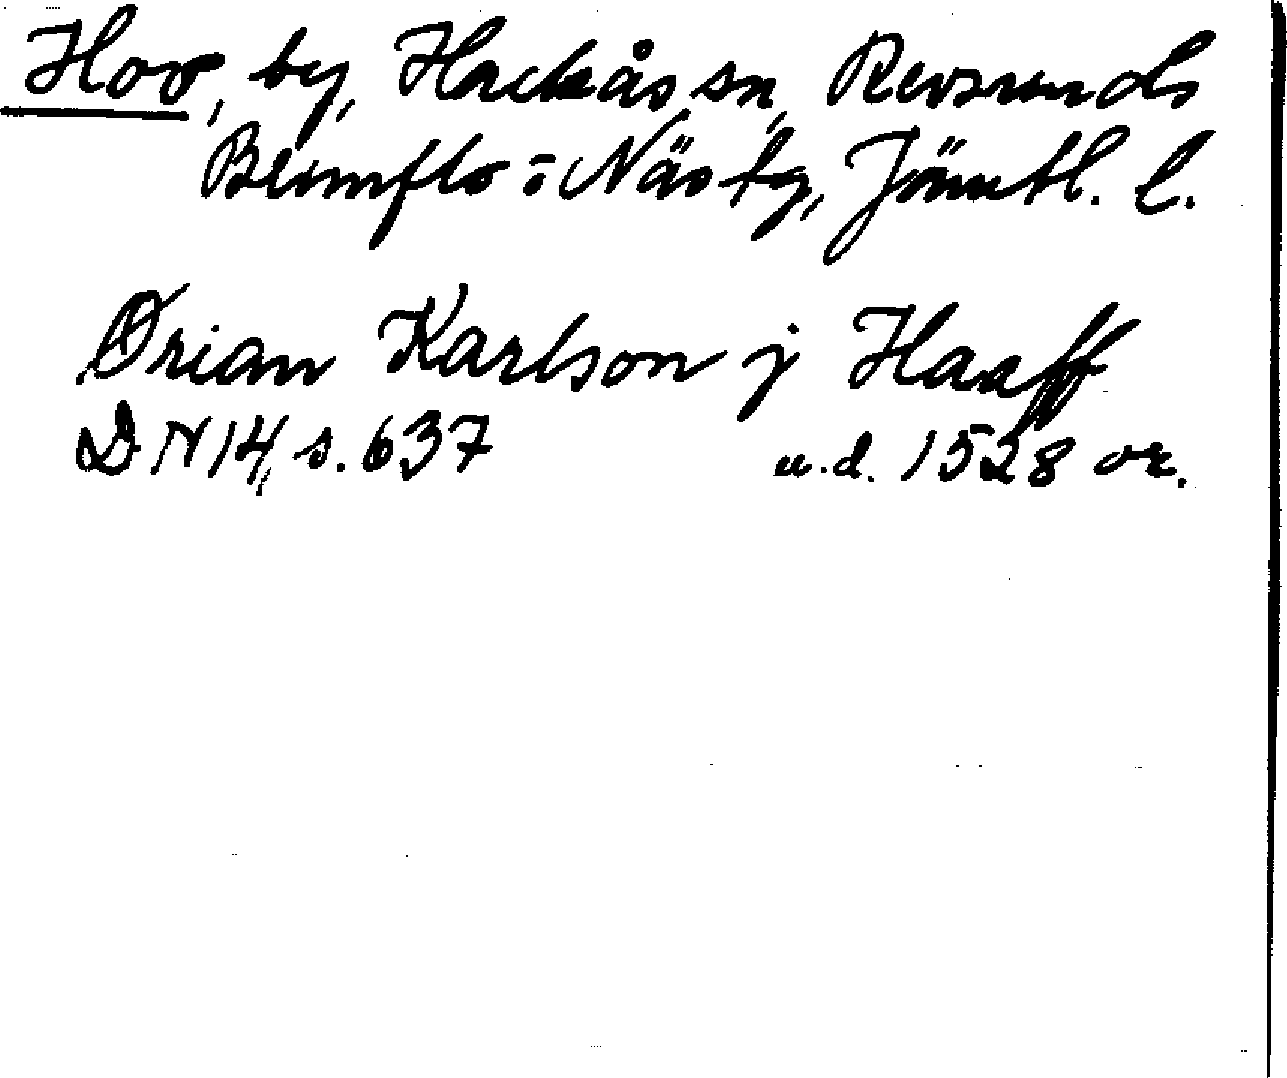 Hov, by, Hackås sn, Revsunds
Brunflo o Näs tg, Jämtl. l.
Ørian Karlson j Haaff
DN 14, s. 637 u.d. 1528 or.